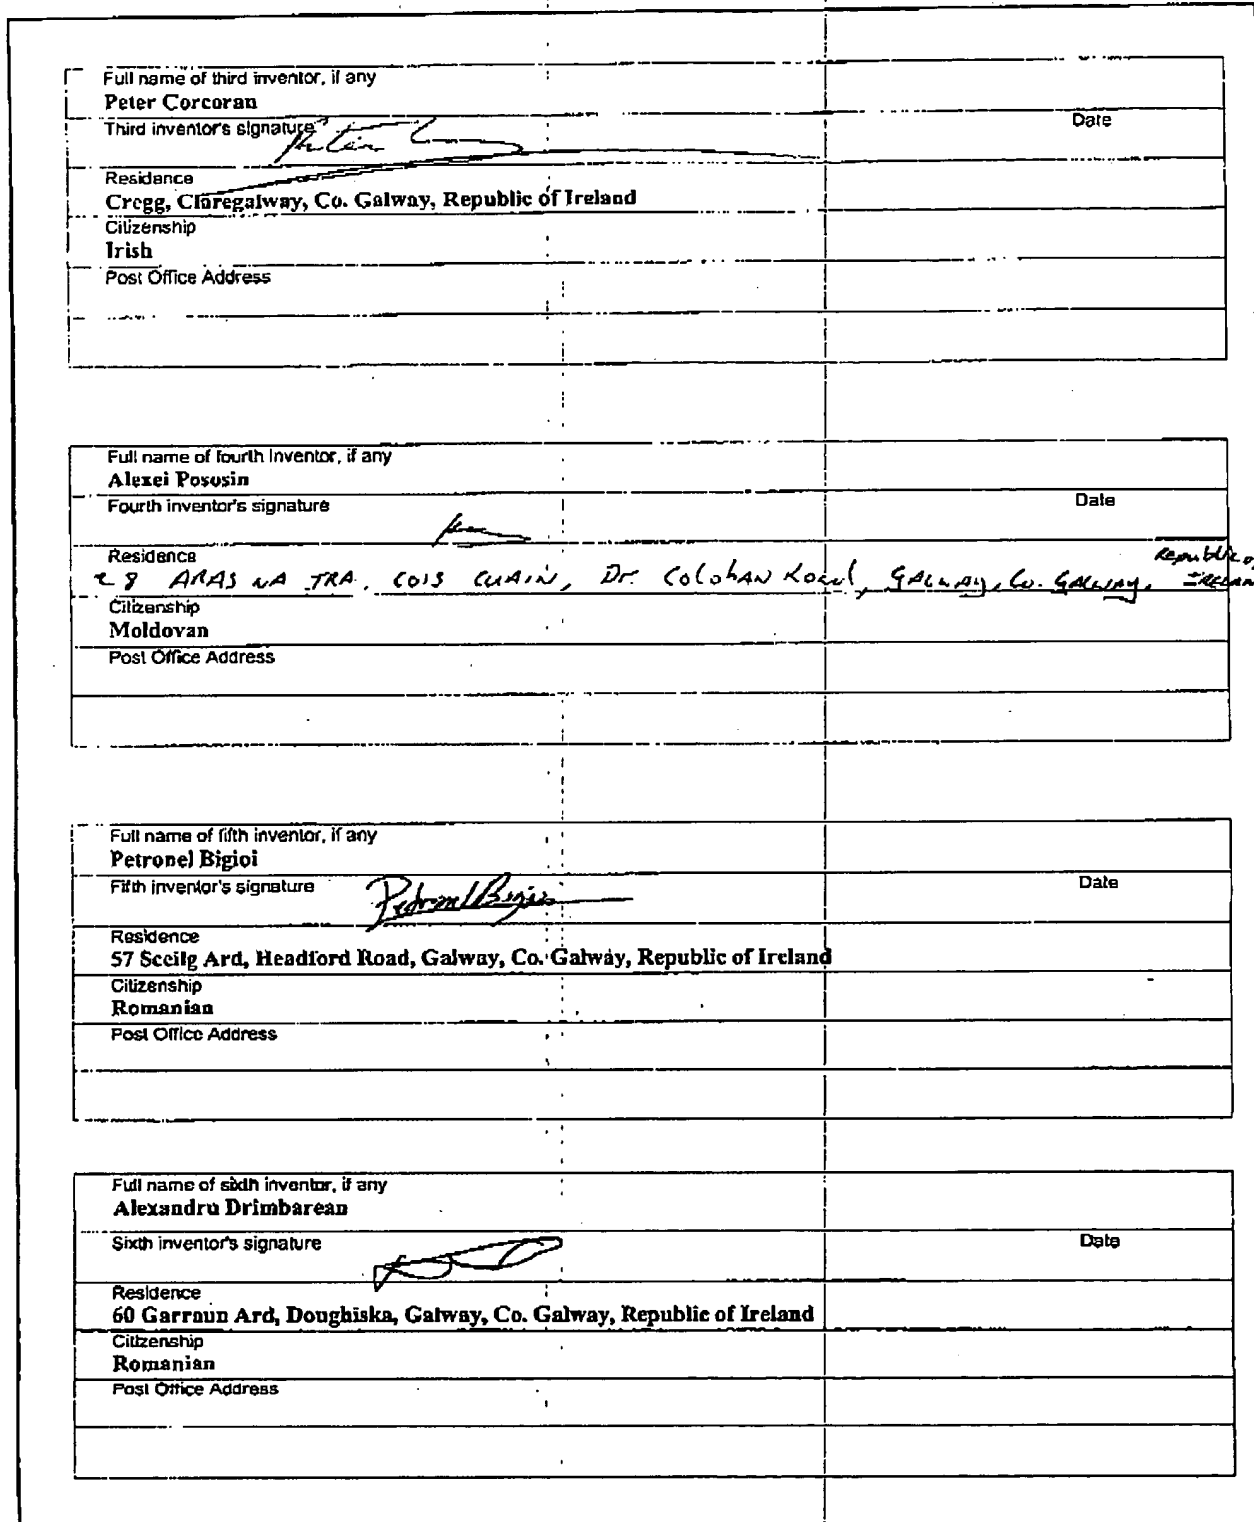 Full name of third inventor, if any
Peter Corcoran
Third inventor's signature
Date
Residence
Cregg, Claregalway, Co. Galway, Republic of Ireland
Citizenship
Irish
Post Office Address
Full name of fourth inventor, if any
Alexei Pososin
Fourth inventor's signature
Date
Residence
Republic of
8 ARAS NA TRA. COIS CUAIN, Dr. Colohan Road, GALWAY, Co. GALWAY, IRELAND
Citizenship
Moldovan
Post Office Address
Full name of fifth inventor, if any
Petronel Bigioi
Fifth inventor's signature
Petronel Bigioi
Date
Residence
57 Sceilg Ard, Headford Road, Galway, Co. Galway, Republic of Ireland
Citizenship
Romanian
Post Office Address
Full name of sixth inventor, if any
Alexandru Drimbarean
Sixth inventor's signature
Date
Residence
60 Garraun Ard, Doughiska, Galway, Co. Galway, Republic of Ireland
Citizenship
Romanian
Post Office Address